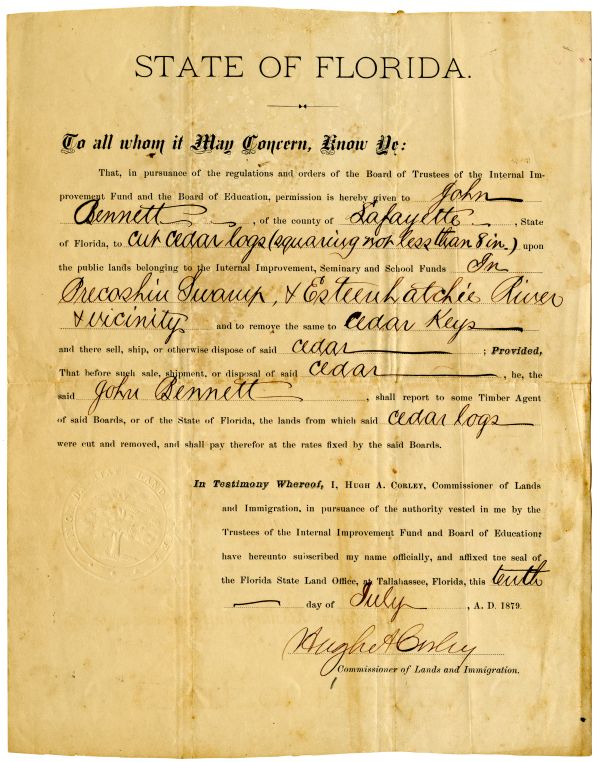 STATE OF FLORIDA.
To all whom it May Concern, Know Ye:
That, in pursuance of the regulations and orders of the Board of Trustees of the Internal Im-
provement Fund and the Board of Education, permission is hereby given to John
Bennett, of the county of Lafayette, State
of Florida, to cut cedar logs (squaring not less than 8 in.) upon
the public lands belonging to the Internal Improvement, Seminary and School Funds In
Precoshin Swamp, & Esteenhatchie River
& vicinity and to remove the same to Cedar Keys
and there sell, ship, or otherwise dispose of said cedar ; Provided,
That before such sale, shipment, or disposal of said cedar, he, the
said John Bennett, shall report to some Timber Agent
of said Boards, or of the State of Florida, the lands from which said cedar logs
were cut and removed, and shall pay therefor at the rates fixed by the said Boards.
In Testimony Whereof, I, HUGH A. CORLEY, Commissioner of Lands
and Immigration, in pursuance of the authority vested in me by the
Trustees of the Internal Improvement Fund and Board of Education,
have hereunto subscribed my name officially, and affixed the seal of
the Florida State Land Office, at Tallahassee, Florida, this tenth
day of July, A. D. 1879.
Hugh A Corley
Commissioner of Lands and Immigration.